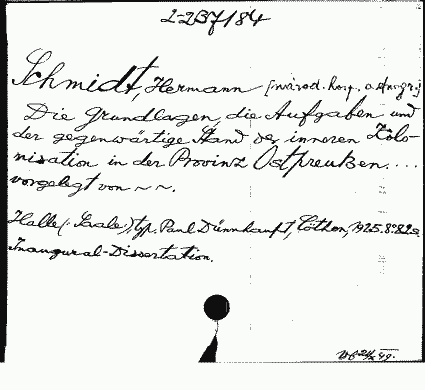 2-237184
Schmidt, Hermann [národ. hosp. a
Die Grundlagen, die Aufgaben und
der gegenwärtige Stand der inneren Kolo-
nisation in der Provinz Ostpreußen....
vorgelegt von ~ ~.
Halle (: Saale:), typ. Paul Dünnhaupt, Cöthen, 1925. 8°. 82 s.
Inaugural-Dissertation.